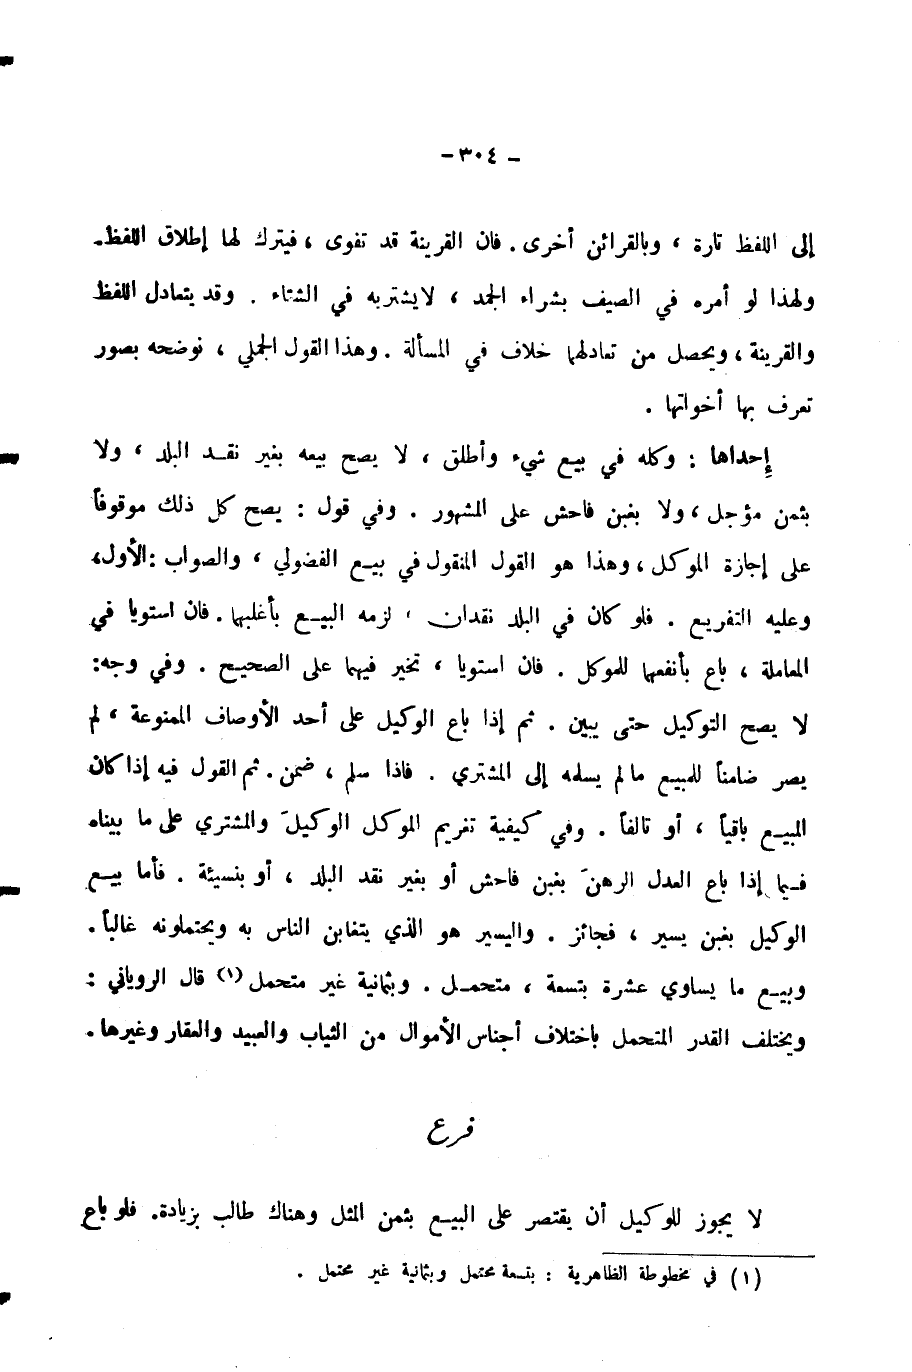 - ٣٠٤ -
إلى اللفظ تارة ، وبالقرائن أخرى . فان القرينة قد تقوى ، فيترك لها إطلاق اللفظ.
ولهذا لو أمره في الصيف بشراء الجمد ، لايشتريه في الشتاء . وقد يتعادل اللفظ
والقرينة ، ويحصل من تعادلهما خلاف في المسألة . وهذا القول الجملي ، نوضحه بصور
تعرف بها أخواتها .
إحداها : وكله في بيع شيء وأطلق ، لا يصح بيعه بغير نقد البلد ، ولا
بثمن مؤجل ، ولا بغبن فاحش على المشهور . وفي قول : يصح كل ذلك موقوفاً
على إجازة الموكل ، وهذا هو القول المنقول في بيع الفضولي ، والصواب : الأول،
وعليه التفريع . فلو كان في البلد نقدان ، لزمه البيع بأغلبها . فان استويا في
المعاملة ، باع بأنفعها للموكل . فان استويا ، تخير فيهما على الصحيح . وفي وجه:
لا يصح التوكيل حتى يبين . ثم إذا باع الوكيل على أحد الأوصاف الممنوعة ، لم
يصر ضامناً للمبيع مالم يسلمه إلى المشتري . فاذا سلم ، ضمن . ثم القول فيه إذا كان
المبيع باقياً ، أو تالفاً . وفي كيفية تغريم الموكل الوكيلَ والمشتري على ما بيناه
فيما إذا باع العدل الرهنَ بغبن فاحش أو بغير نقد البلد ، أو بنسيئة . فأما بيع
الوكيل بغبن يسير ، فجائز . واليسير هو الذي يتغابن الناس به ويحتملونه غالباً.
وبيع ما يساوي عشرة بتسعة ، متحمل . وبثمانية غير متحمل (١) قال الروياني :
ويختلف القدر المتحمل باختلاف أجناس الأموال من الثياب والعبيد والعقار وغيرها.
فرع
لا يجوز للوكيل أن يقتصر على البيع بثمن المثل وهناك طالب بزيادة. فلو باع
(١) في مخطوطة الظاهرية : بتسعة محتمل وبثمانية غير محتمل .